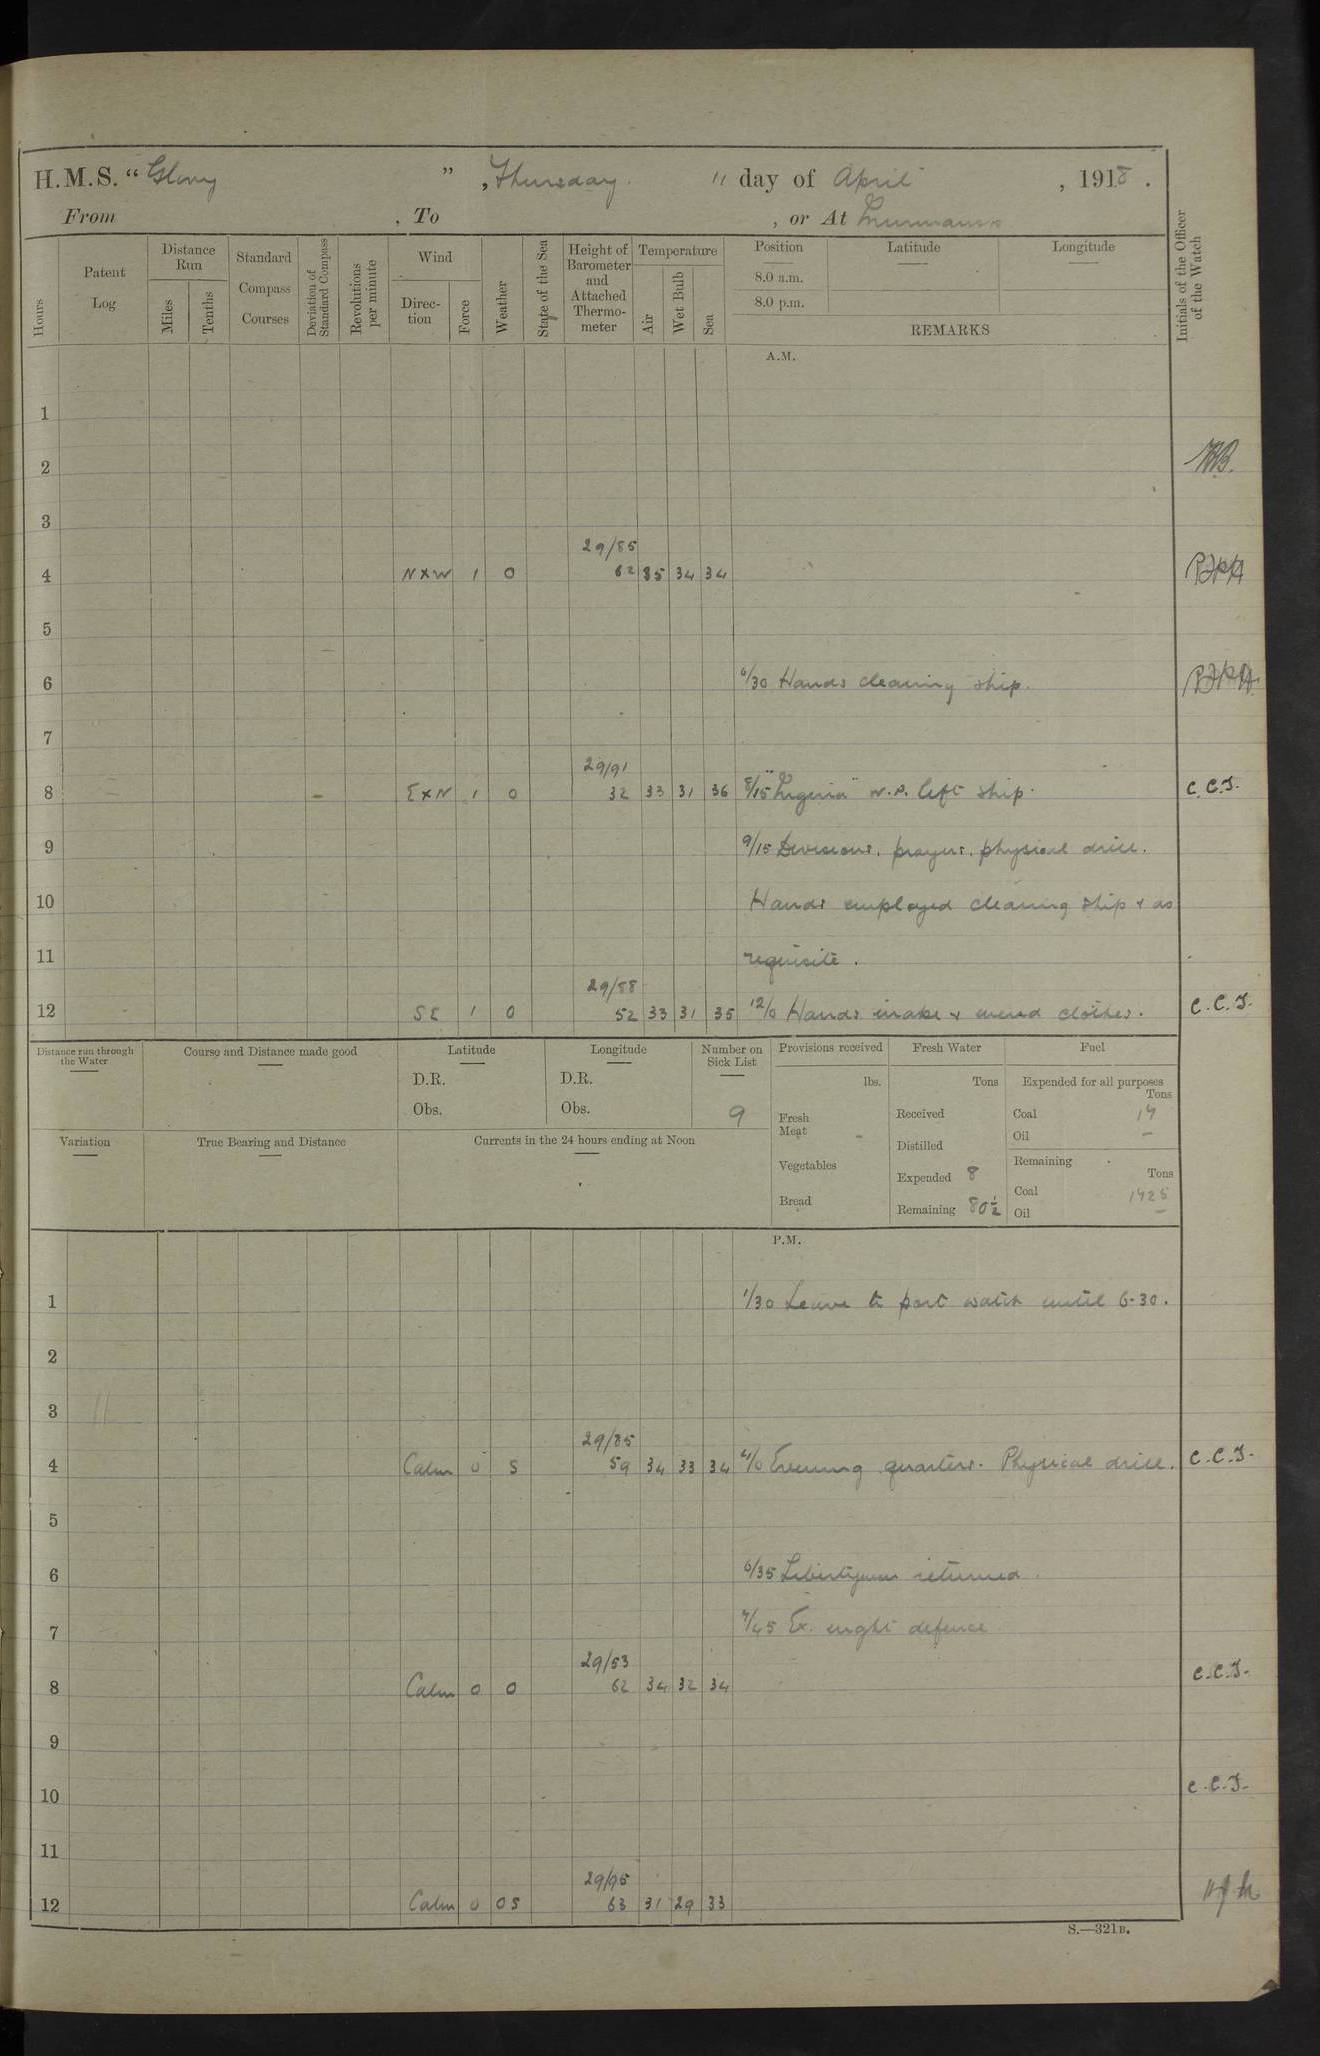 H.M.S. "Glory ", Thursday 11 day of April, 1918.
From , To , or At Murmansk
Hours
Patent Log
Distance Run
Miles
Tenths
Standard Compass Courses
Deviation of Standard Compass
Revolutions per minute
Wind
Direction
Force
Weather
State of the Sea
Height of Barometer and Attached Thermometer
Temperature
Air
Wet Bulb
Sea
Position
8.0 a.m.
8.0 p.m.
Latitude
Longitude
REMARKS
Initials of the Officer of the Watch
A.M.
1
2
3
29/85
4 N×W 1 0 62 35 34 34
5
6 6/30 Hands cleaning ship.
7
29/91
8 E×N 1 0 32 33 31 36 8/15 "Nigeria" W.P. left ship. C.C.J.
9 9/15 Divisions, prayers, physical drill.
10 Hands employed cleaning ship & as
11 requisite.
29/88
12 SE 1 0 52 33 31 35 12/0 Hands make & mend clothes. C.C.J.
Distance run through the Water
Course and Distance made good
Latitude
D.R.
Obs.
Longitude
D.R.
Obs.
Number on Sick List
9
Provisions received
lbs.
Fresh Meat -
Vegetables
Bread
Fresh Water
Tons
Received
Distilled
Expended 8
Remaining 80½
Fuel
Expended for all purposes
Tons
Coal 19
Oil —
Remaining
Tons
Coal 1425
Oil —
Variation
True Bearing and Distance
Currents in the 24 hours ending at Noon
P.M.
1 1/30 Leave to port watch until 6-30.
2
3 11
29/85
4 Calm 0 S 59 34 33 34 4/0 Evening quarters. Physical drill. C.C.J.
5
6 6/35 Libertymen returned.
7 7/45 Ex. night defence
29/53
8 Calm 0 0 62 34 32 34 C.C.J.
9
10 C.C.J.
11
29/95
12 Calm 0 OS 63 31 29 33
S.—321B.